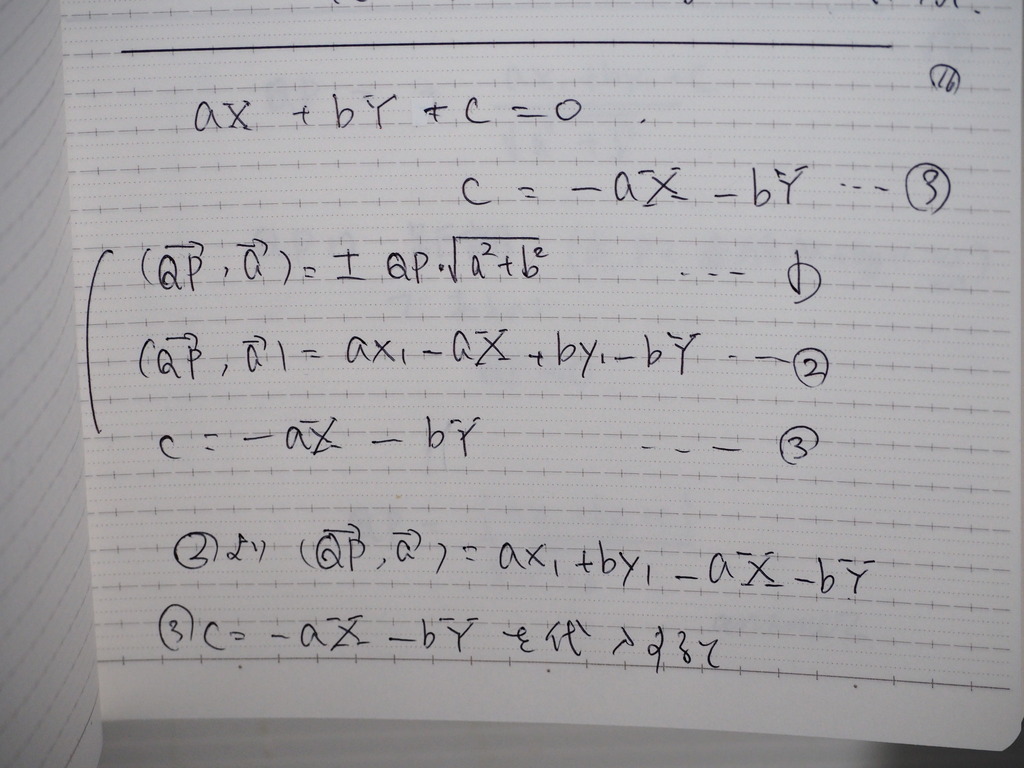 ⑯
aX + bY + c = 0 .
c = -aX - bY --- ③
(QP⃗, a⃗) = ± QP・√(a²+b²) --- ①
(QP⃗, a⃗) = ax₁ - aX + by₁ - bY --- ②
c = -aX - bY --- ③
②より (QP⃗, a⃗) = ax₁ + by₁ - aX - bY
③ c = -aX - bY を代入すると